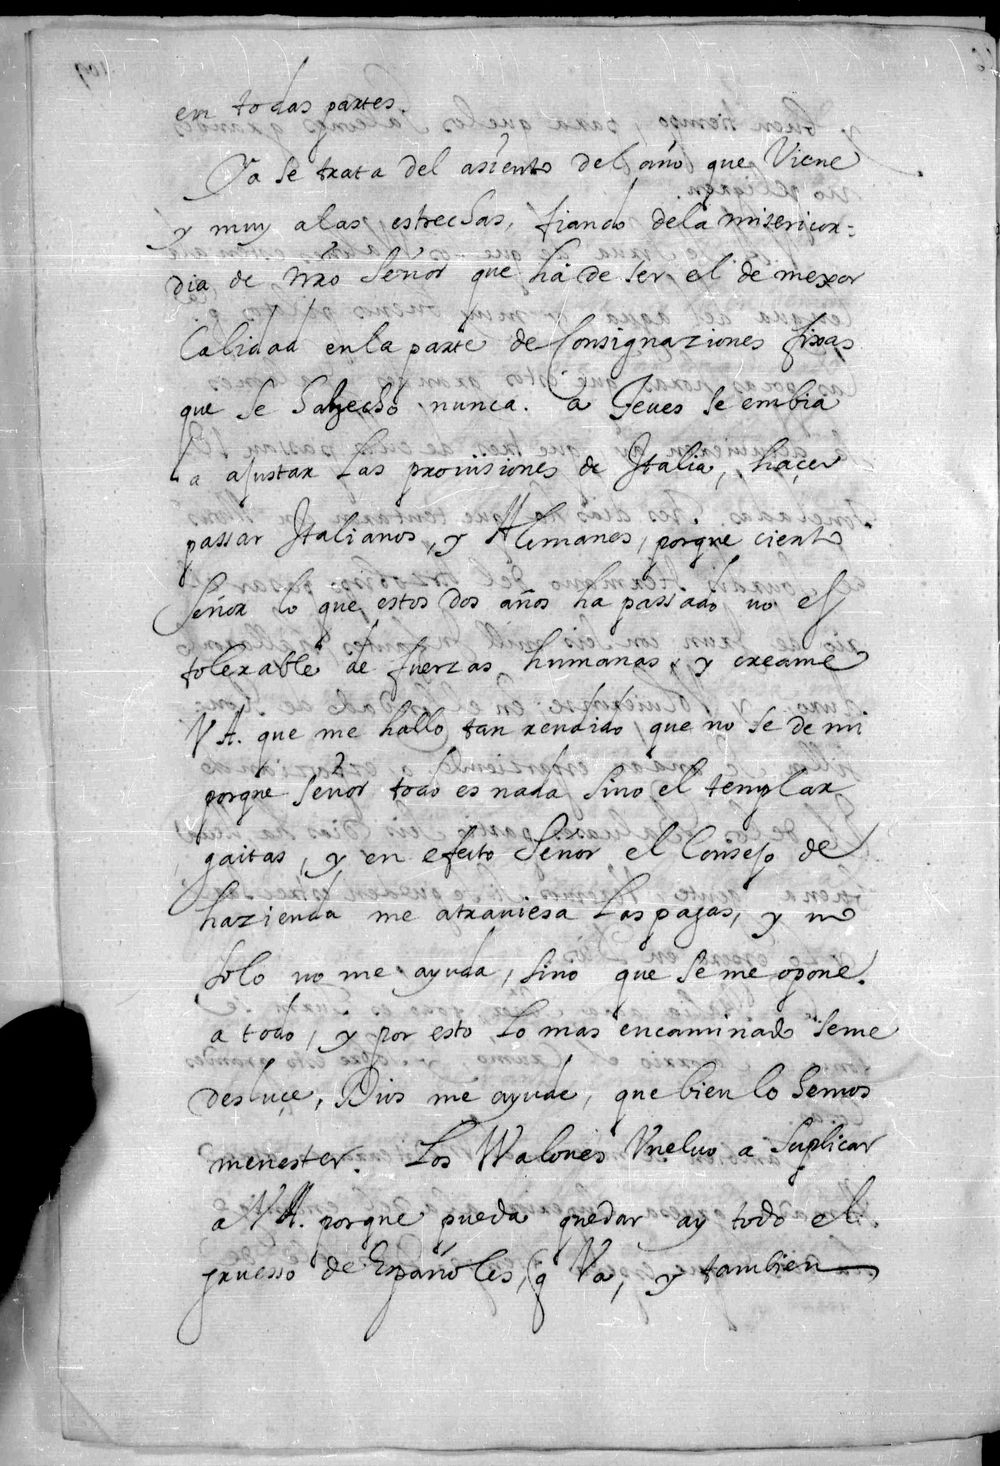 en todas partes.
Ya se trata del asiento del año que Viene
y muy a las estrechas, fiando dela misericor=
dia de nr̃o Señor que há de ser el de mexor
Calidad en la parte de Consignaziones fixas
que se ha hecho nunca. a Jeues se embia
a ajustar las prouisiones de Italia, haçer
passar Italianos, y Alemanes, porque cierto
Señor lo que estos dos años ha passado no es
tolerable de fuerzas humanas, y creame
V A. que me hallo tan rendido, que no se de mi
porque Señor todo es nada sino el templar
gaitas, y en efeto Señor el Consejo de
hazienda me atrauiesa las pagas, y no
solo no me ayuda, sino que se me opone.
a todo, y por esto lo mas encaminado seme
desluçe, Dios me ayude, que bien lo hemos
menester. Los Walones Vueluo a suplicar
a V A. porque pueda quedar ay todo el
gruesso de Españoles, q̃ Va, y tambien